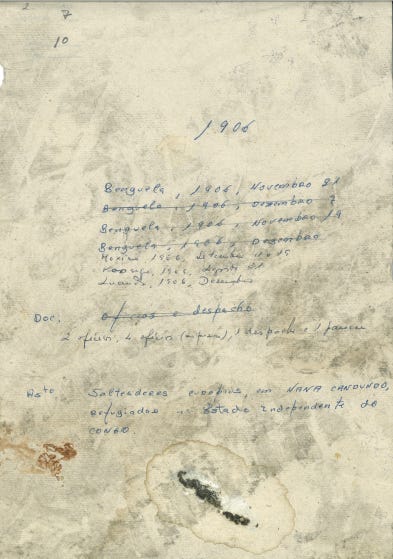 2
7
10
1906
Benguela, 1906, Novembro 21
Benguela, 1906, Dezembro 7
Benguela, 1906, Novembro 19
Benguela, 1906, Dezembro
Moxico, 1906, Setembro 11 e 15
1906, Agosto 21
Luanda, 1906, Dezembro
Doc. Ofícios e despacho
2 ofícios, 4 ofícios 1 despacho e 1
Asto Salteadores europeus, em NANA CANDUNDO,
refugiados Estado Independente do
CONGO.